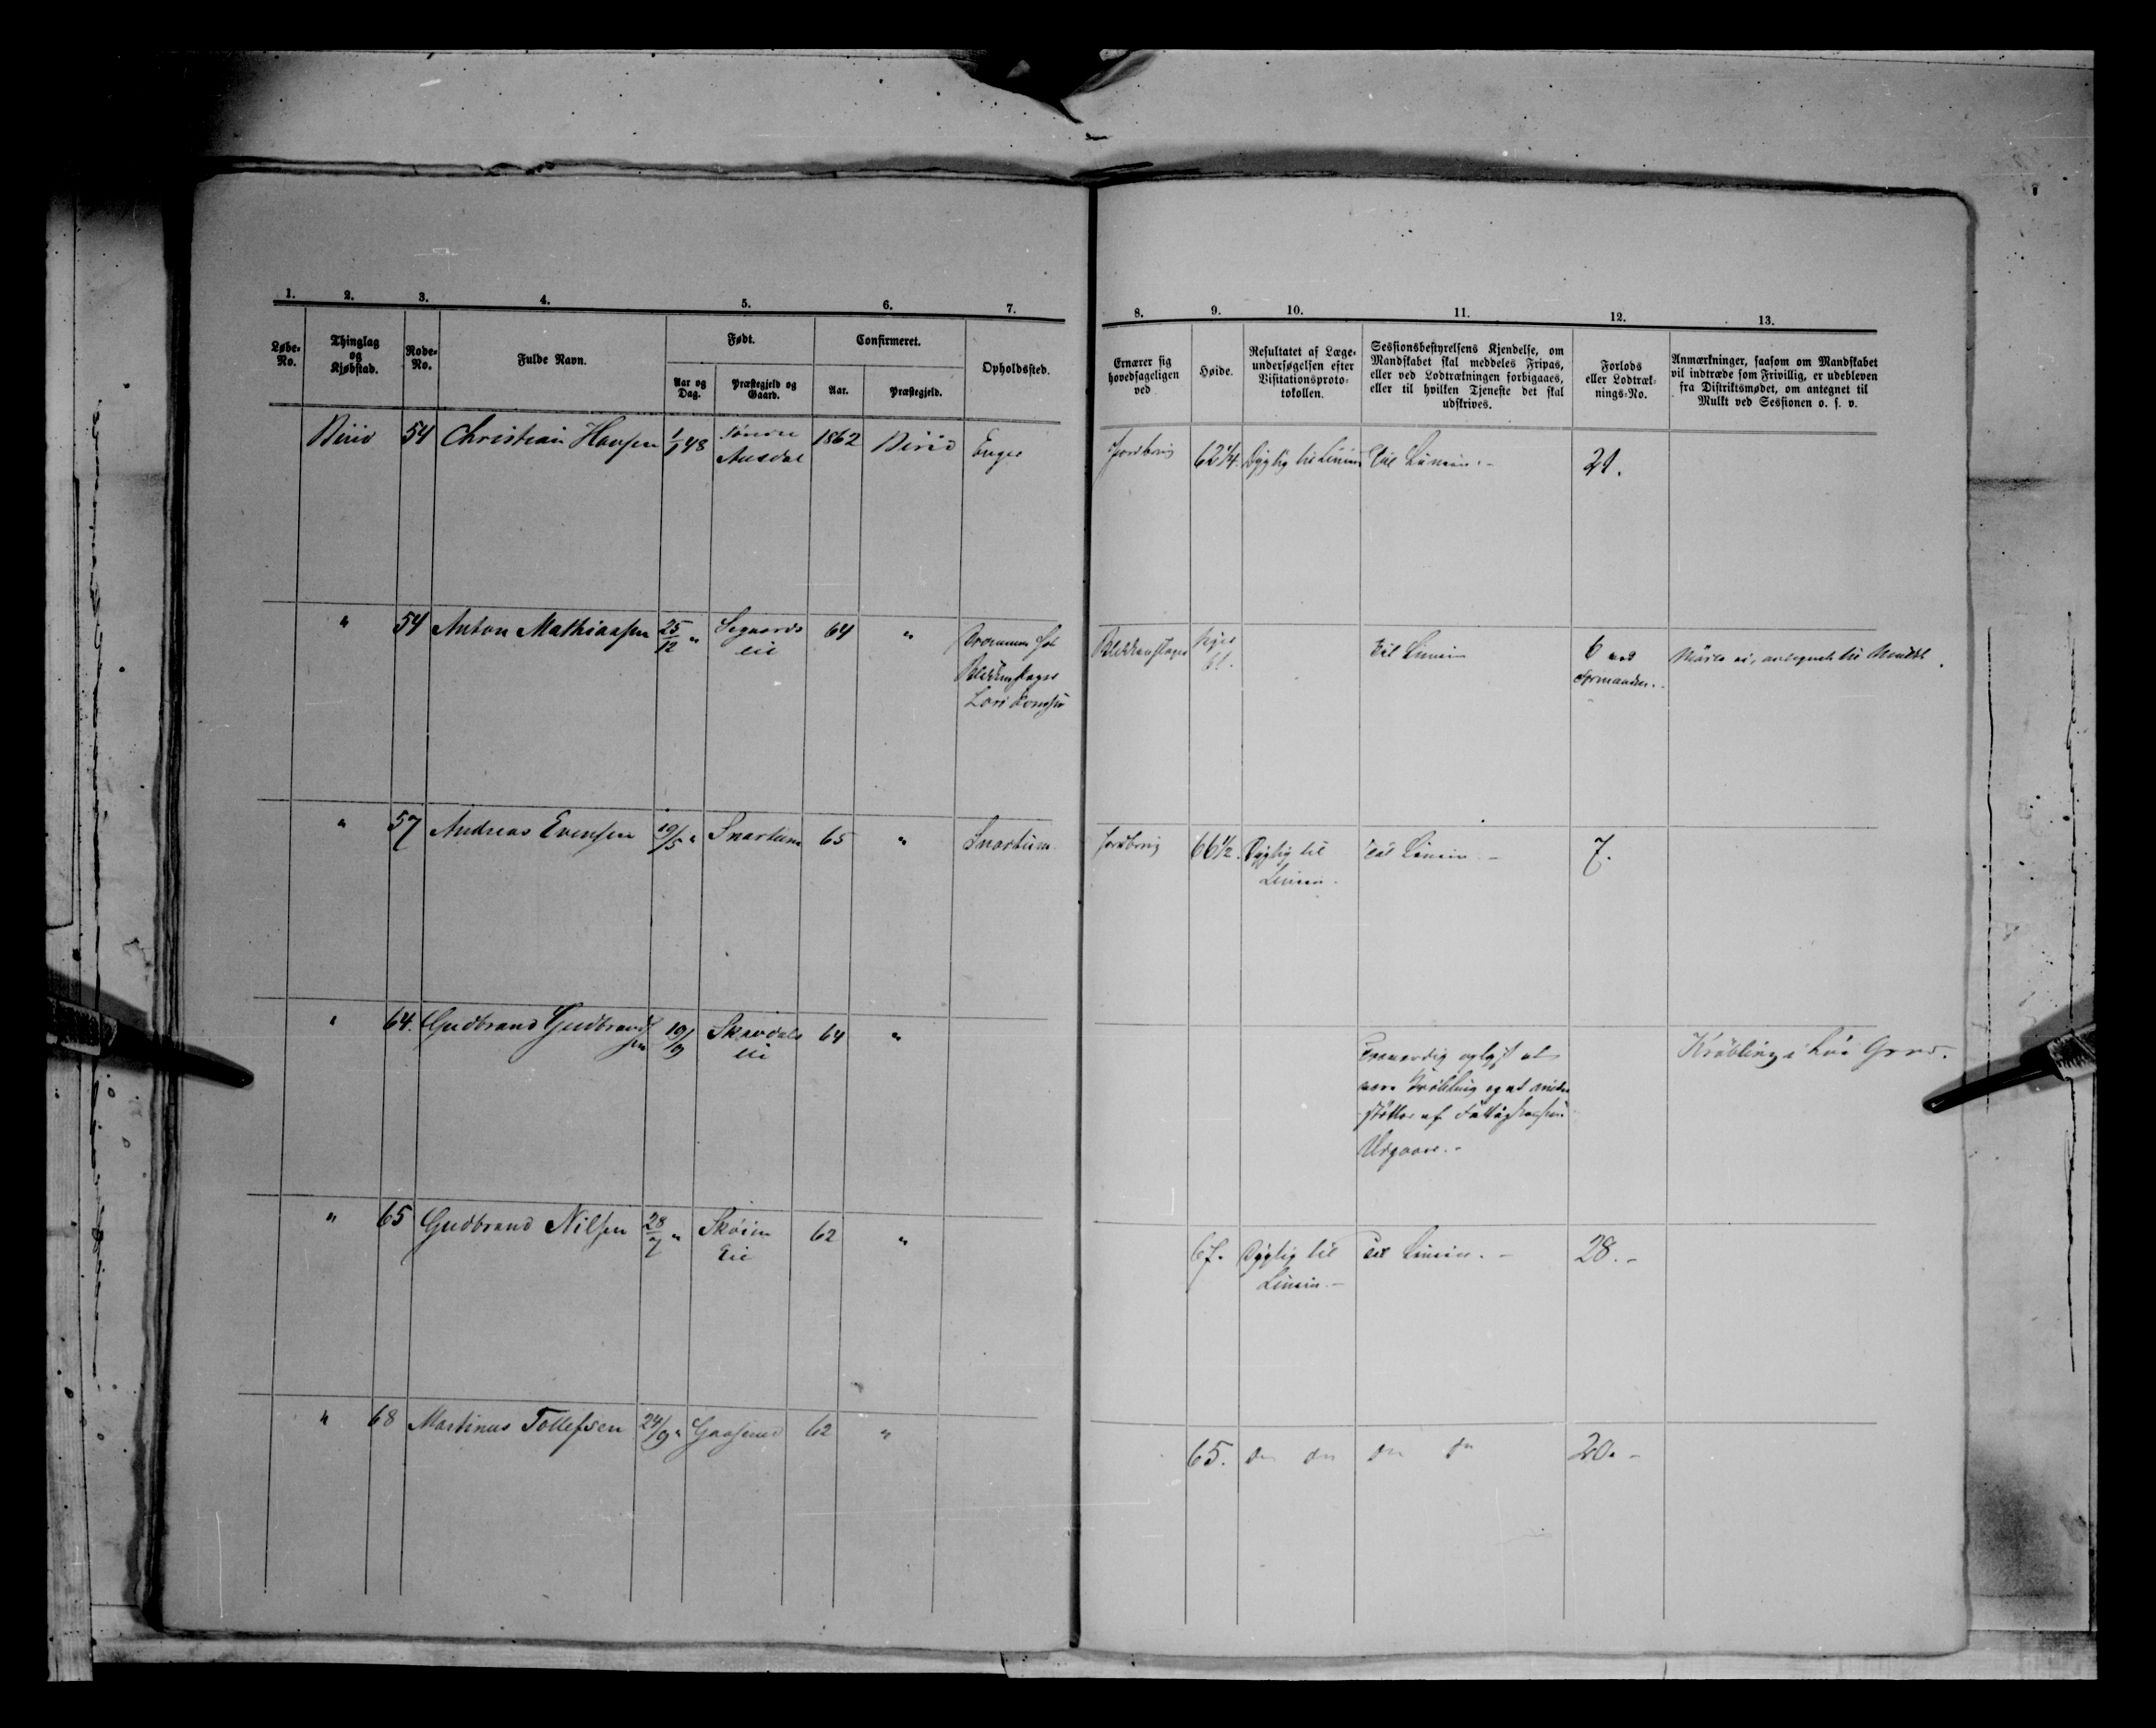 1. 2. 3. 4. 5. 6. 7.
Løbe-No. Thinglag og Kjøbstad. Rode-No. Fulde Navn. Født. Confirmeret. Opholdssted.
Aar og Dag. Præstegjeld og Gaard. Aar. Præstegjeld.
Birid 54 Christian Hansen 1/1 48 1862 Birid Enger
" 54 Anton Mathiassen 25/12 " Segaards eie 64 "
" 57 Andreas Evensen 19/5 " Snartum 65 " Snartum
" 64. Gudbrand Gudbrandsen 19/9 Skavdals eie 64 "
" 65 Gudbrand Nilsen 28/7 " Skøien Eie 62 "
" 68 Martinus Tollefsen 24/9 " 62 "
8. 9. 10. 11. 12. 13.
Ernærer sig hovedsageligen ved
Høide.
Resultatet af Læge-
undersøgelsen efter
Visitationsproto-
tokollen.
Sessionsbestyrelsens Kjendelse, om
Mandskabet skal meddeles Fripas,
eller ved Lodtrækningen forbigaaes,
eller til hvilken Tjeneste det skal
udskrives.
Forlods
eller Lodtræk-
nings-No.
Anmærkninger, saasom om Mandskabet
vil indtræde som Frivillig, er udebleven
fra Distriktsmødet, om antegnet til
Mulkt ved Sessionen o. s. v.
Jordbrug 62 1/4. Dygtig til Linien Til Linien. - 21.
Til Linien 6
Mødte ei, antegnet til Mulkt.
Jordbrug 66 1/2. Dygtig til Linien. Til Linien. - 7.
være Krøbling og at
Udgaar. -
Krøbling i
67. Dygtig til Linien. - Til Linien. - 28. -
65. do do do do 20. -